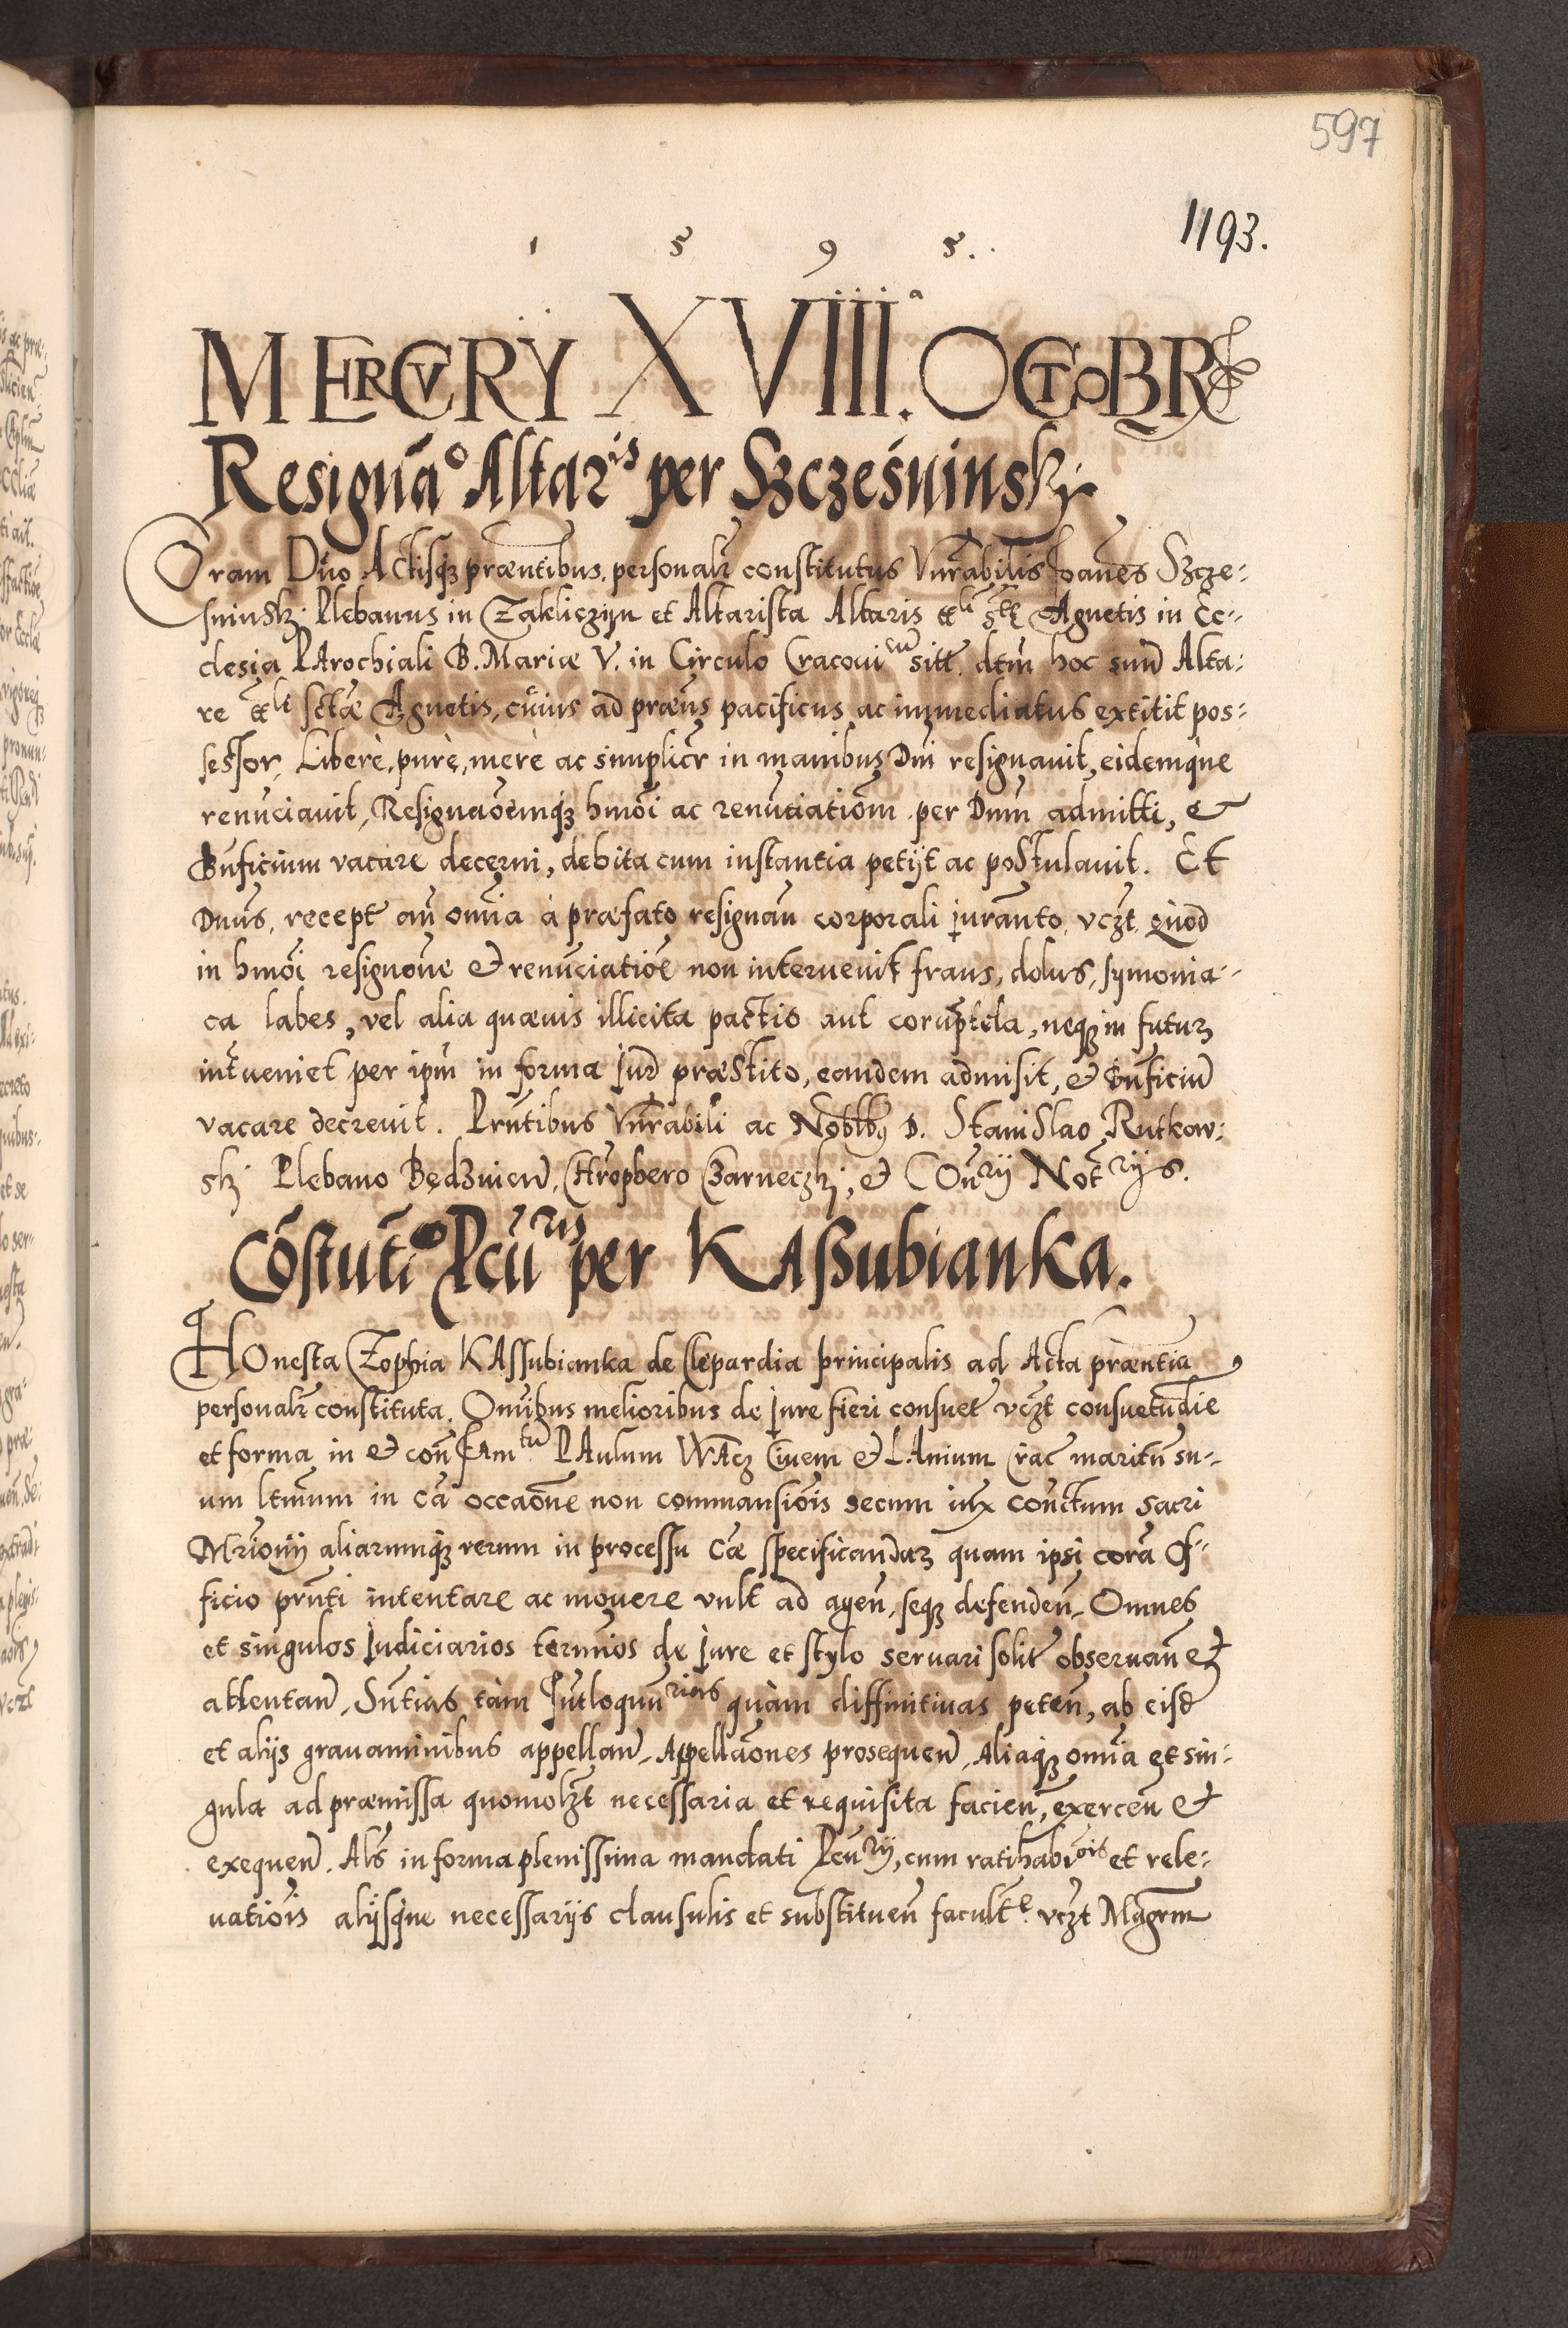 597
1193.
1 5 9 5.
MERCVRŸ XVIIIa. OCTOBR
Resignāo Altaris per Szczesninsky
Coram Dño Actisqʒ præntibus. personalr constitutus Vnrabilis Joanēs Szcze:
sninskj Plebanus in Zakliczyn et Altarista Altaris Agnetis in Ec:
clesia PArochiali B. Mariæ V. in Circulo Cracouien sitt. dctm hoc suū Alta:
re sctæ Agnetis, cuius ad præns pacificus ac immediatus extitit pos:
sessor, Liberè, purè, merè ac simplicr in manibus Dni resignauit, eidemque
renūciauit, Resignaōemqʒ hmōi ac renūtiatiōm per Dnum admitti, &
Bnficium vacare decerni, debita cum instantia petijt ac postulauit. Et
Dnus, recept an omīa à præfato resignan corporali juranto, vcʒt, quod
in hmōi resignone & renūciatiōē non interuenit fraus, dolus, symonia:
ca labes, vel alia quæuis illicita pactio aut coruptela, neqʒ in futurʒ
intueniet per ipm in forma Jurd præstito, eandem admisit, & Bnficiū
vacare decreuit. Prntibus Vnrabili ac Noblbʒ D. Stanislao Rutkow:
skj Plebano Bedzinien, Chrophero Czarneczkj, & COnrij Notrijs.
Cōstutio Pcūris per KAßubianka.
HOnesta Zophia KAssubianka de Clepardia principalis ad Acta præntia
personalr constituta. Omībus melioribus de Jure fieri consuet vcʒt consuetudie
et forma in & con fAmtu PAulum WAcʒ Ciuem & LAnium Crac maritū su:
um ltmum in cā occaōne non commansiōis secum iux conctum sacri
Mrionij aliarumqʒ rerum in processu Cæ specificandarʒ quam ipsi corā Of:
ficio prnti intentare ac mouere vult ad agen, seqʒ defenden, Omnes
et singulos Judiciarios termīos de Jure et stylo seruari solit obseruan &
attentan, Sntias tàm Intloqunrias quàm diffinitiuas peten, ab eisd
et alijs grauaminibus appellan, Appellaōnes prosequen, Aliaqʒ omīa et sin:
gula ad præmissa quomolʒt necessaria et requisita facien, exercen &
exequen. Als in forma plenissima mandati Pcurij, cum ratihabiois et rele:
uatiōis alijsque necessarijs clausulis et substituen facultte vcʒt Magrm